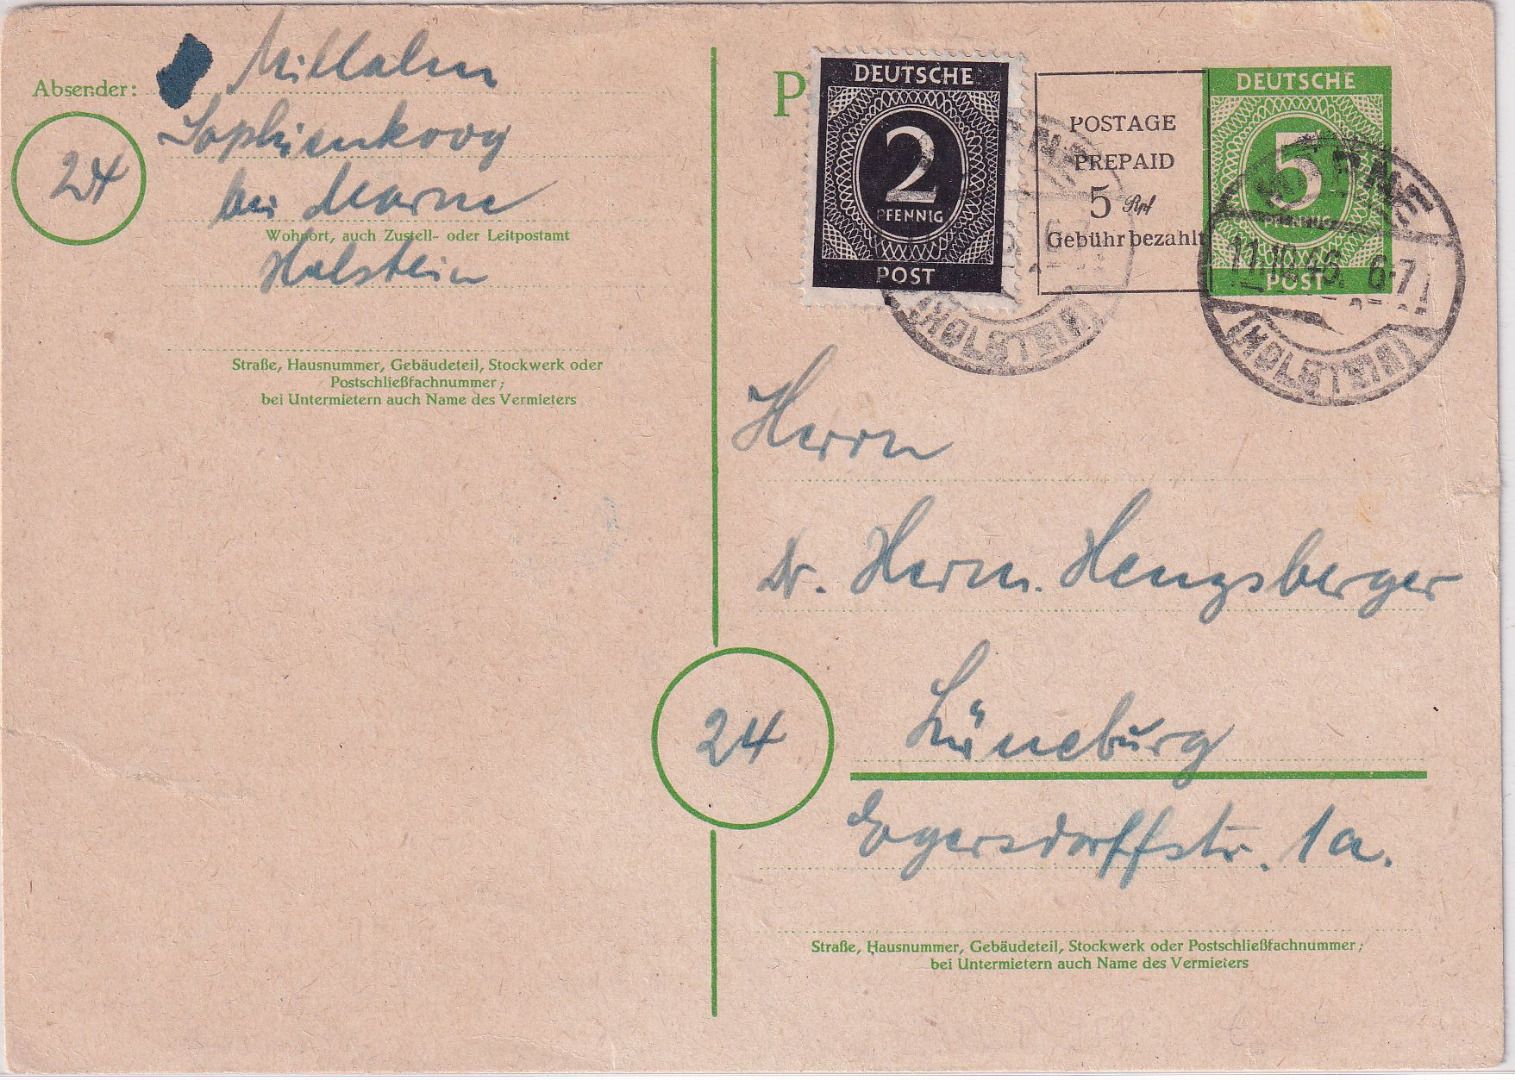 Absender:
Sophienkoog
bei Marne
Wohnort, auch Zustell- oder Leitpostamt
Holstein
24
Straße, Hausnummer, Gebäudeteil, Stockwerk oder
Postschließfachnummer;
bei Untermietern auch Name des Vermieters
P
DEUTSCHE
2
PFENNIG
POST
POSTAGE
PREPAID
5 Rpf
Gebühr bezahlt
DEUTSCHE
5
POST
MARNE
11.10.46. 6-7
(HOLSTEIN)
(HOLSTEIN)
Herrn
Dr. Herm. Hengsberger
24
Lüneburg
Egersdorffstr. 1a.
Straße, Hausnummer, Gebäudeteil, Stockwerk oder Postschließfachnummer;
bei Untermietern auch Name des Vermieters